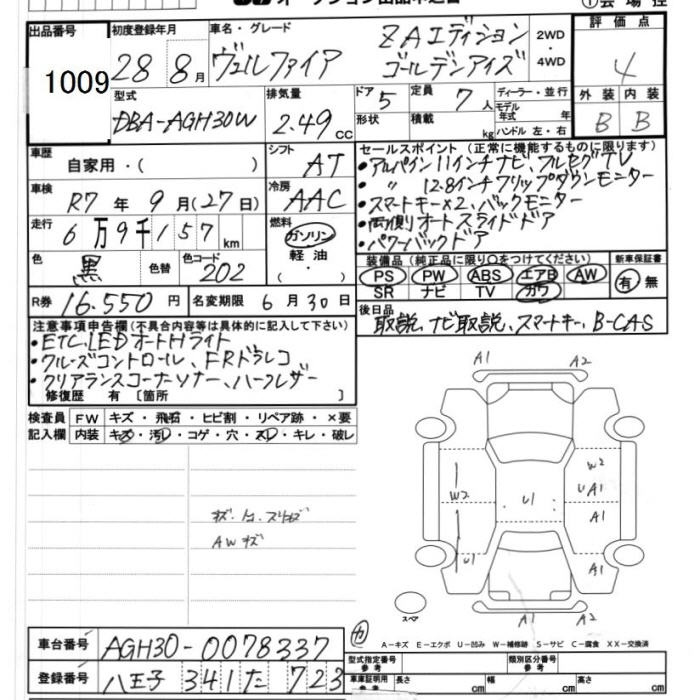 オークション出品申込書
①会場控
出品番号
1009
初度登録年月
28 8月
車名・グレード
ヴェルファイア ZAエディション
ゴールデンアイズ
2WD
・
4WD
評価点
4
型式
DBA-AGH30W
排気量
2.49cc
ドア
5
形状
定員
7人
積載
kg
ディーラー・並行
モデル
年式 年
ハンドル 左・右
外装 内装
B B
車歴
自家用・( )
シフト
AT
車検
R7年9月(27日)
冷房
AAC
走行
6万9千157km
燃料
ガソリン
軽油
・
色
黒
色替
色コード
202
R券 16.550円
名変期限 6月30日
セールスポイント(正常に機能するものに限ります)
・アルパイン11インチナビ、フルセグTV
・ 〃 12.8インチフリップダウンモニター
・スマートキー×2、バックモニター
・両側オートスライドドア
・パワーバックドア
装備品(純正品に限り○をつけてください)
PS PW ABS エアB AW
SR ナビ TV カワ
新車保証書
有・無
後日品
取説、ナビ取説、スマートキー、B-CAS
注意事項申告欄(不具合内容等は具体的に記入して下さい)
・ETC、LEDオートHライト
・クルーズコントロール、FRドラレコ
・クリアランスコーナーソナー、ハーフレザー
修復歴 有 〔箇所 〕
検査員
記入欄
FW キズ・飛石・ヒビ割・リペア跡・×要
内装 キズ・汚レ・コゲ・穴・スレ・キレ・破レ
AWキズ
A1 A2
W2
U A1
A1
W2
U1
U1
A1
A1 A2
スペア
カ
A-キズ E-エクボ U-凹み W-補修跡 S-サビ C-腐食 XX-交換済
車台番号
AGH30-0078337
登録番号
八王子 341 た 723
型式指定番号
参考
類別区分番号
参考
車庫証明用
参考
長さ cm
幅 cm
高さ cm